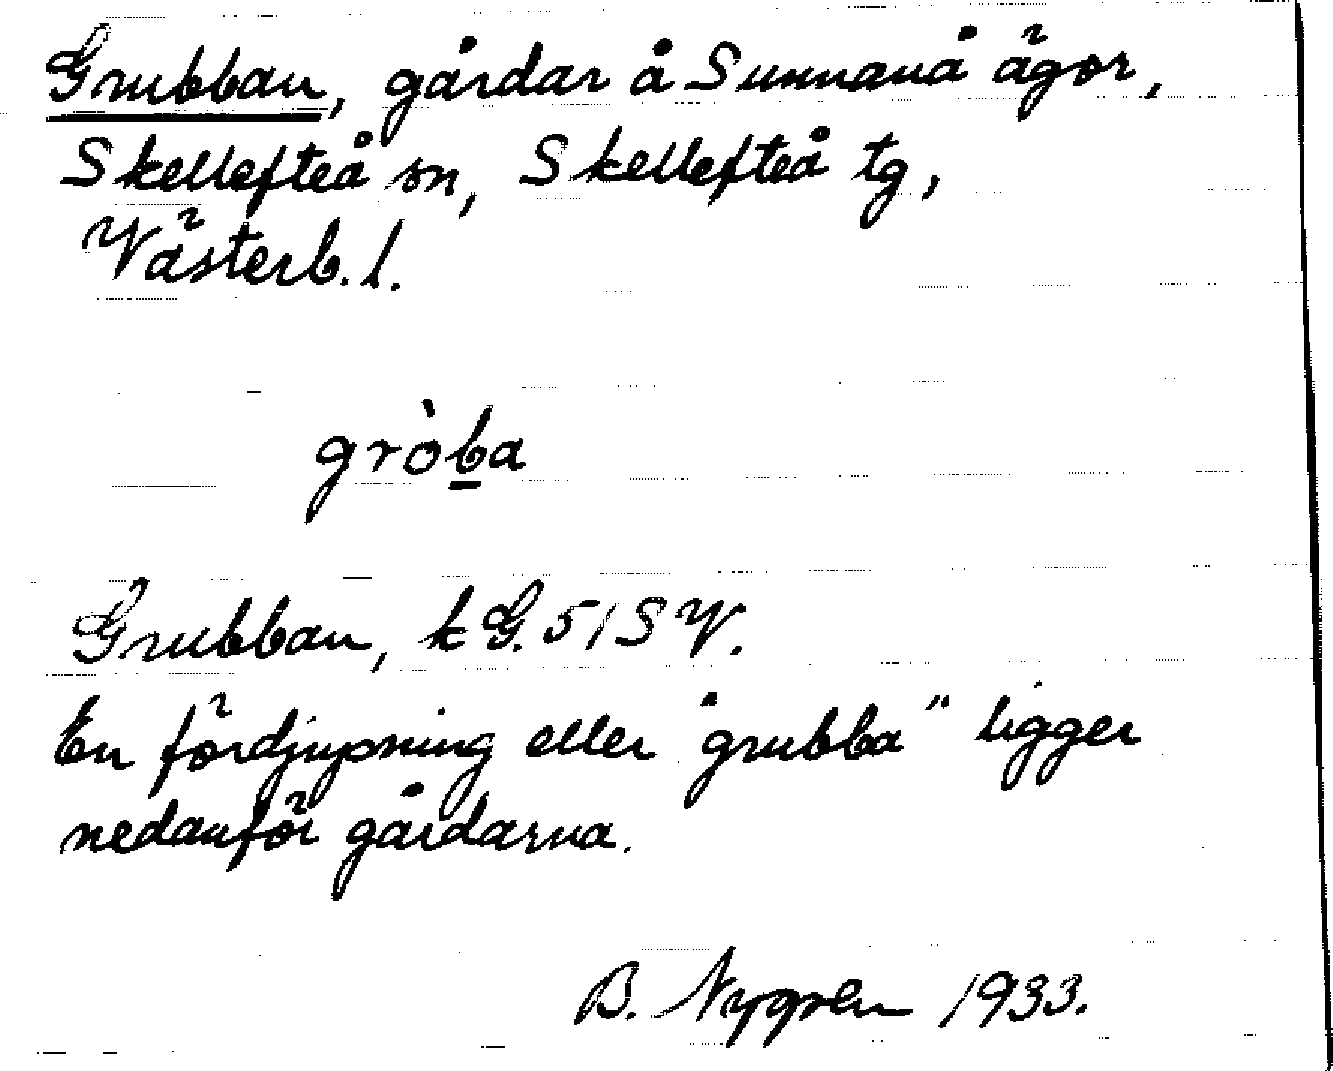 Grubban, gårdar å Sunnanå ägor,
Skellefteå sn, Skellefteå tg,
Västerb. l.
gròb̲a
Grubban, k G. 51 S V.
En fördjupning eller "grubba" ligger
nedanför gårdarna.
B. Nygren 1933.